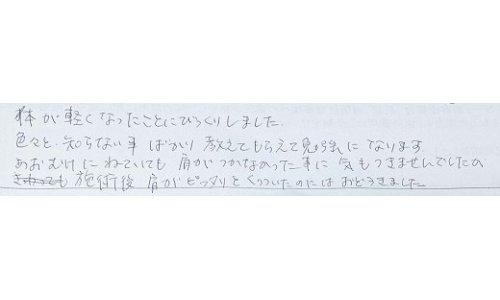 体が軽くなったことにびっくりしました.
色々と知らない事ばかり教えてもらえて勉強になります
あおむけにねていても肩がつかなかった事に気もつきませんでしたの
施術後肩がピッタリとくっついたのにはおどろきました